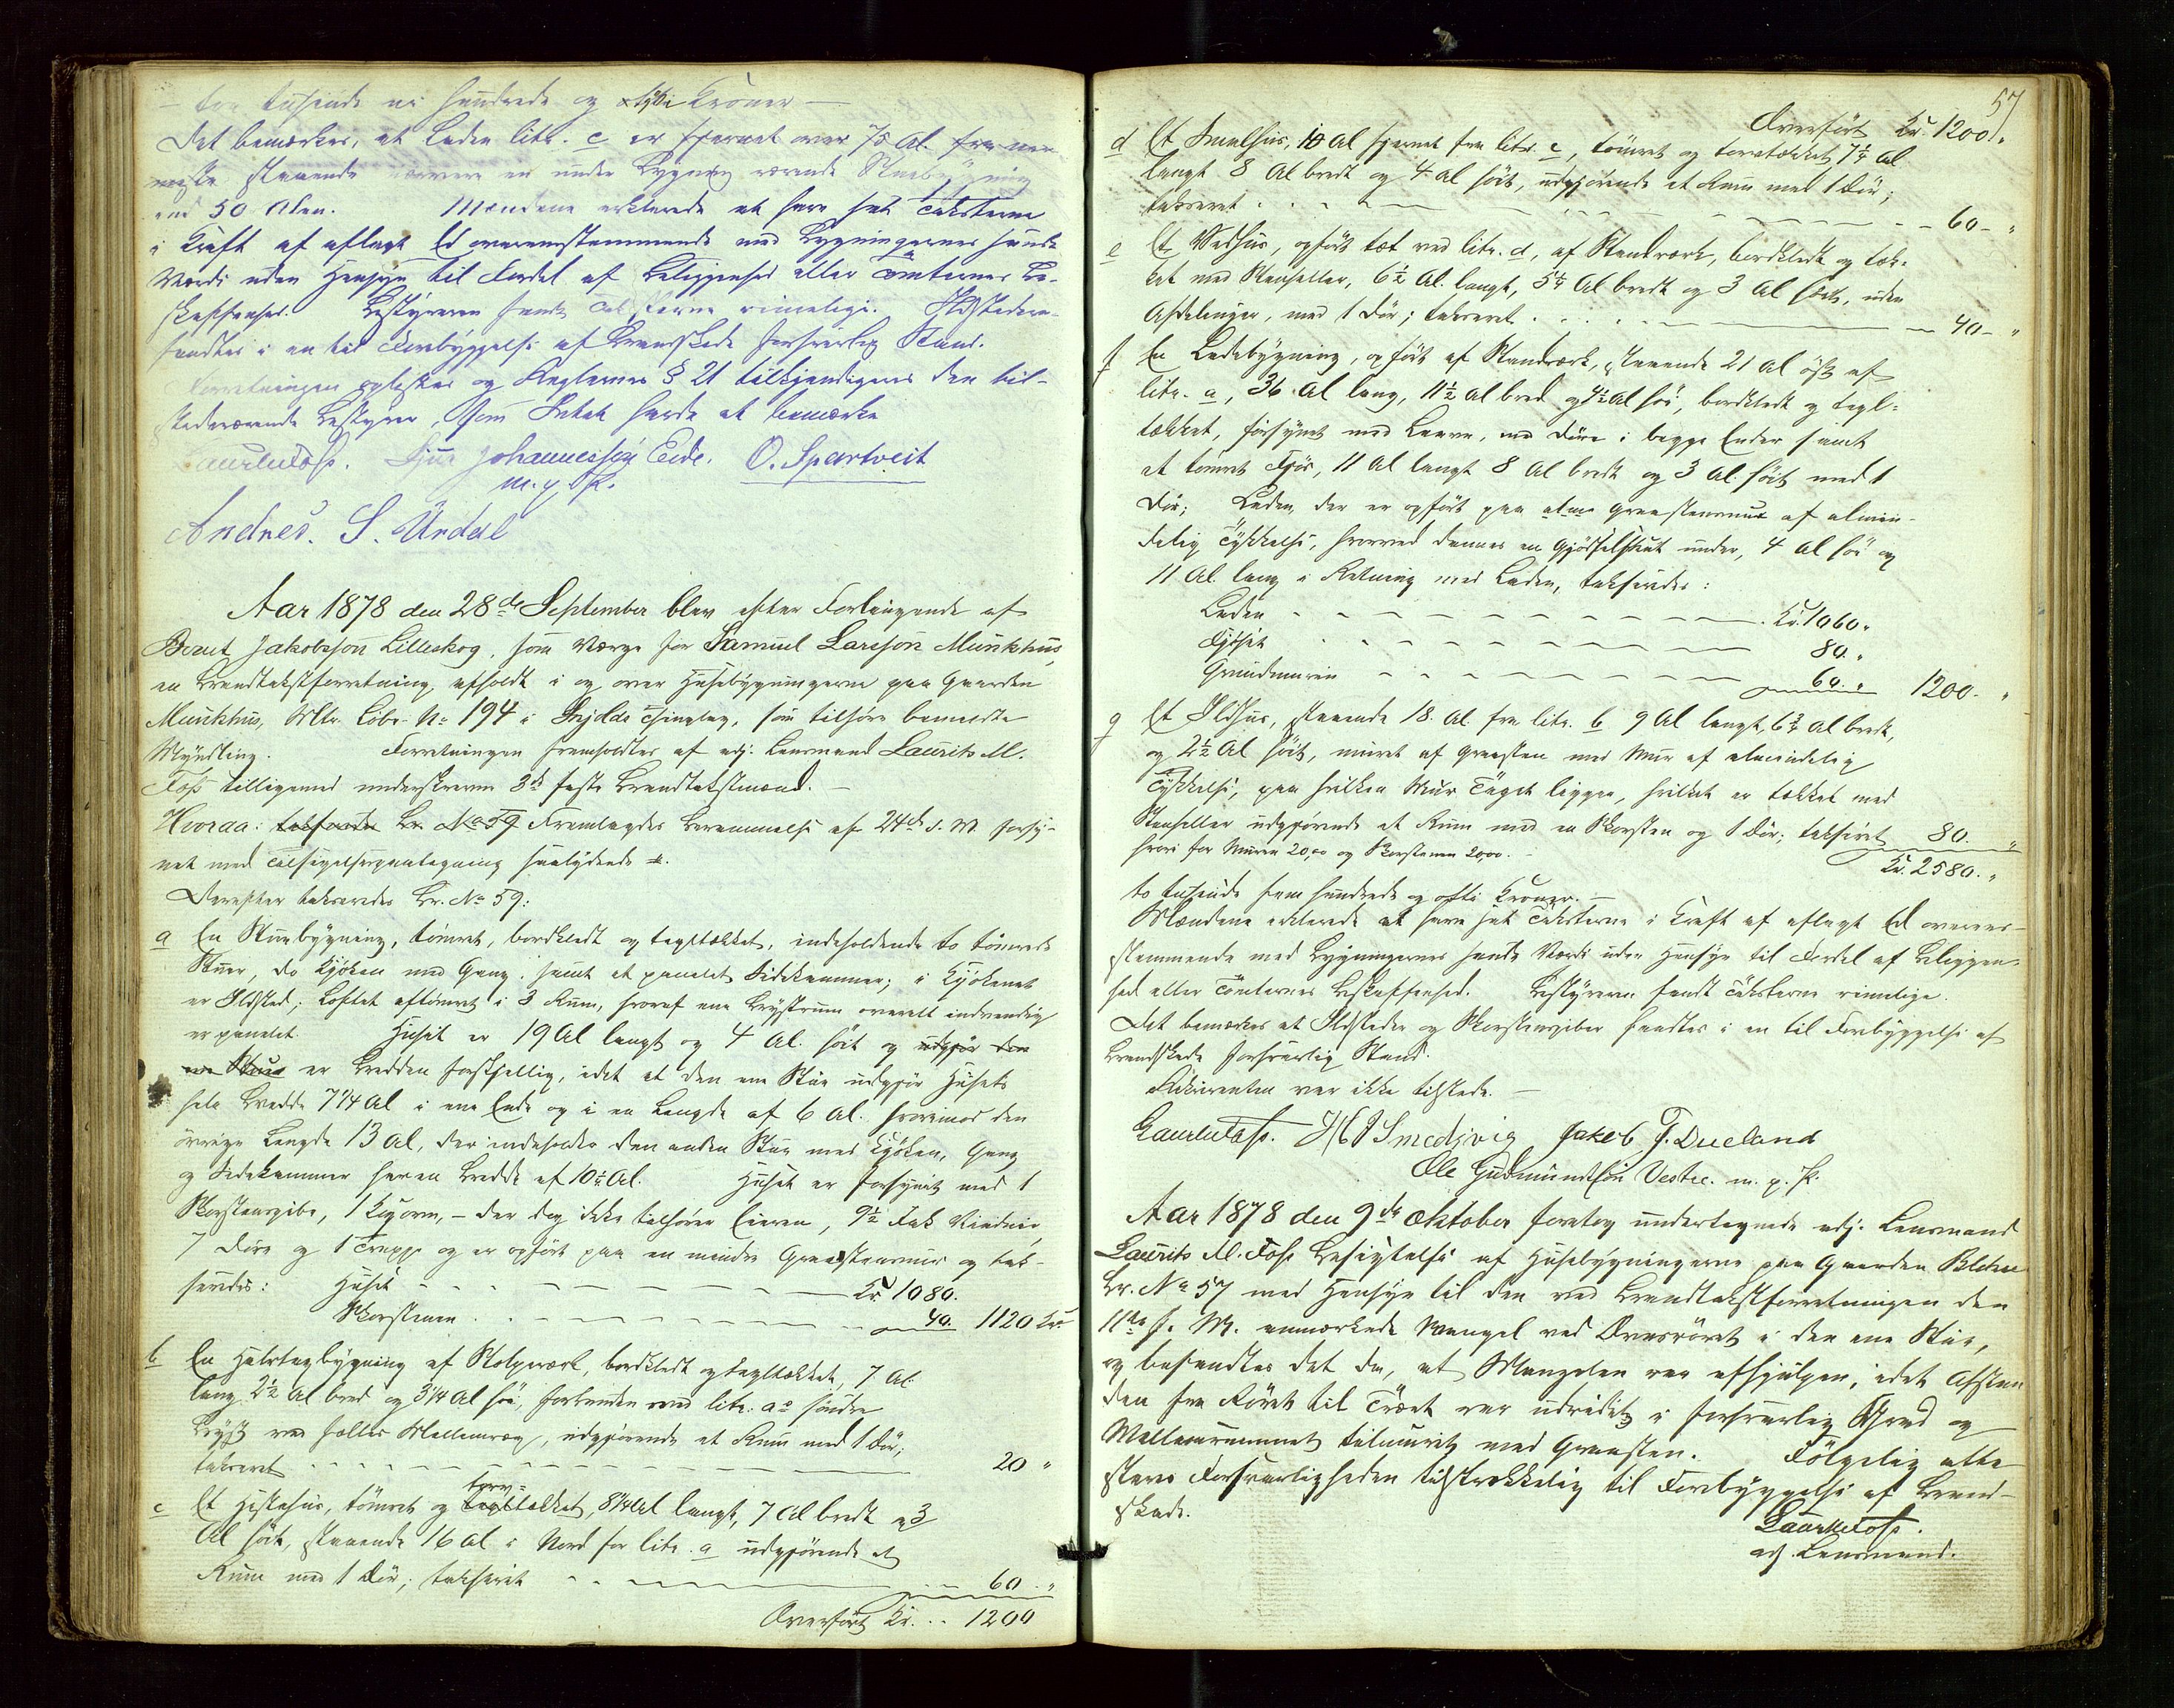 — tre tusinde ni hundrede og otti Kroner —
Det bemærkes, at Laden litr. c er fjernet over 75 Al. fra nær
meste staaende ... en under Bygning værende Stuebygning
end 50 Alen. Mændene erklærede at have sat Taksterne
i Kraft af aflagt Ed overensstemmende med Bygningernes sande
Værdi uden Hensyn til Fordel af Beliggenhed eller Tomternes Be-
skaffenhed. Bestyreren fandt Taksterne rimelige. Ildstederne
fandtes i en til Forebyggelse af Brandskade forsvarlig Stand.
Forretningen oplæstes og Reglernes § 21 tilkjendegives den til-
stedeværende Bestyrer, som Intet havde at bemærke
Laurits Foss. Sjur Johannessen Eide. O. Spartveit
m. p. P.
Andres. S. Urdal
Aar 1878 den 28de September blev efter Forlangende af
Bernt Jakobsson Lilleskog, som Værge for Samuel Larsson Munkhus,
en Brandtakstforretning afholdt i og over Husebygningerne paa Gaarden
Munkhus, Mtr. Løbe-No 194 i Skjolds Thinglag, som tilhører bemeldte
Myndling. Forretningen fremholdtes af adj. Lensmand Laurits M.
Foss tilligemed underskrevne 3de faste Brandtakstmænd. —
Hvoraa: takserede Br. No 59 Fremlagdes Berammelse af 24de d. M. forsy-
net med Tilsigelsespaategning saalydende
Derefter takseredes Br. No 59:
a En Stuebygning, tømret, bordklædt og tegltækket, indeholdende to tømrede
Stuer, do Kjøken med Gang, samt et panelet Sidekammer; i Kjøkenet
er Ildsted; Loftet aftømret i 3 Rum, hvoraf ene Brystrum overalt indvendig
er panelet. Huset er 19 Al langt og 4 Al. høit og udgjør den
ene Stue er Bredden forskjellig, idet at den ene Stue udgjør Husets
hele Bredde 7 1/4 Al i ene Ende og i en Længde af 6 Al. hvorimod den
øvrige Længde 13 Al, der indeholder den anden Stue med Kjøken, Gang
og Sidekammer har en Bredde af 10 1/2 Al. Huset er forsynet med 1
Skorstenspibe, 1 Kogovn, — der dog ikke tilhører Eieren, 9 1/2 Fak Vinduer,
7 Døre og 1 Trappe og er opført paa en mindre Graastensmur og tak-
seredes: Huset — — — Kr. 1080.
Skorstenen — — — 40. 1120 Kr.
b En Halvtagbygning af Stolpeværk, bordklædt og tegltækket, 7 Al
lang 2 1/2 Al bred og 3 1/4 Al høi, forbunden med litr. a's søndre
Bryst med fælles Mellemvæg, udgjørende et Rum med 1 Dør;
takseret — — — 20 "
torv=
c Et Hestehus, tømret og tegltækket, 8 1/4 Al langt, 7 Al bredt og 3
Al høit, staaende 16 Al i Nord for litr. a udgjørende et
Rum med 1 Dør; takseret — — — 60 "
Overført Kr. .. 1200
57
Overført Kr. 1200 "
d Et Smalhus, 10 Al fjernet fra litr. c, tømret og torvtækket, 7 1/4 Al
langt 8 Al bredt og 4 Al høit, udgjørende et Rum med 1 Dør;
takseret — — — 60 — "
e Et Vedhus, opført tæt ved litr. d, af Standværk, bordklædt og tæk-
ket med Stenheller, 6 1/2 Al. langt, 5 1/4 Al bredt og 3 Al høit, uden
Afdelinger, med 1 Dør; takseret — — — 40 — "
f En Ladebygning, opført af Standværk, staaende 21 Al øst af
litr. a, 36 Al lang, 11 1/2 Al bred og 4 1/2 Al høi, bordklædt og tegl-
tækket, forsynet med Laave, med Døre i begge Ender samt
et tømret Fjøs, 11 Al langt 8 Al bredt og 3 Al. høit med 1
Dør; Laden, der er opført paa alm Graastensmur af almin-
delig Tykkelse, hvorved dannes en Gjødselskut under, 4 Al høi og
11 Al. lang i Retning med Laden, takseredes:
Laden — — — Kr. 1060 "
Fjøset — — — 80 "
Grundmuren — — — 60. " 1200. "
g Et Ildhus, staaende 18. Al. fra litr. b 9 Al langt, 6 3/4 Al bredt,
og 2 1/2 Al høit, muret af Graasten med Mur af almindelig
Tykkelse, paa hvilken Mur Taget ligger, hvilket er tækket med
Stenheller udgjørende et Rum med en Skorsten og 1 Dør; takseret 80. "
hvori for Muren 20,00 og Skorstenen 2000. — Kr. 2580. "
to tusinde fem hundrede og otti Kroner. —
Mændene erklærede at have sat Taksterne i Kraft af aflagt Ed overens-
stemmende med Bygningernes sande Værdi uden Hensyn til Fordel af Beliggen-
hed eller Tomternes Beskaffenhed. Bestyreren fandt Taksterne rimelige.
Det bemærkes at Ildsteder og Skorstenspiber fandtes i en til Forebyggelse af
Brandskade forsvarlig Stand.
Rekvirenten var ikke tilstede. —
Laurits Foss. H J Smedsvig Jakob T. Dueland
Ole Gudmundsøn Vestre. m. p. P.
Aar 1878 den 9de Oktober foretog undertegnede adj. Lensmand
Laurits M. Foss Besigtelse af Husebygningerne paa Gaarden
Br. No 57 med Hensyn til den ved Brandtakstforretningen den
11te f. M. anmærkede Mangel ved Ovnsrøret i den ene Stue,
og befandtes det da, at Manglen var afhjulpen, idet Afstan
den fra Røret til Træet var udvidet i forsvarlig Grad og
Mellemrummet tilmuret med Graasten. Følgelig atte
steres Forsvarligheden tilstrækkelig til Forebyggelse af Brand-
skade.
Laurits Foss.
adj. Lensmand.